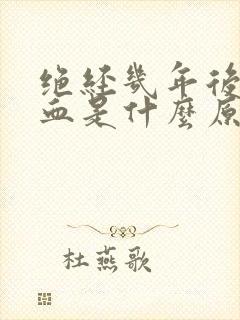 绝经幾年後
血是什麼原
杜燕歌